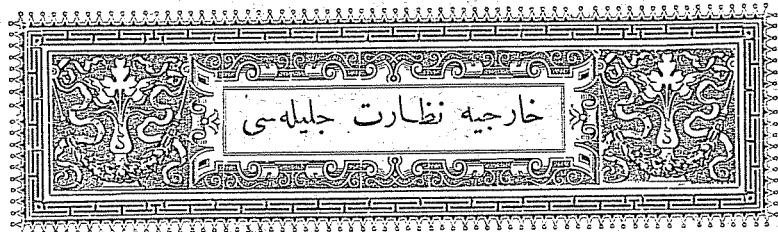 خارجیه نظارت جلیله‌سی